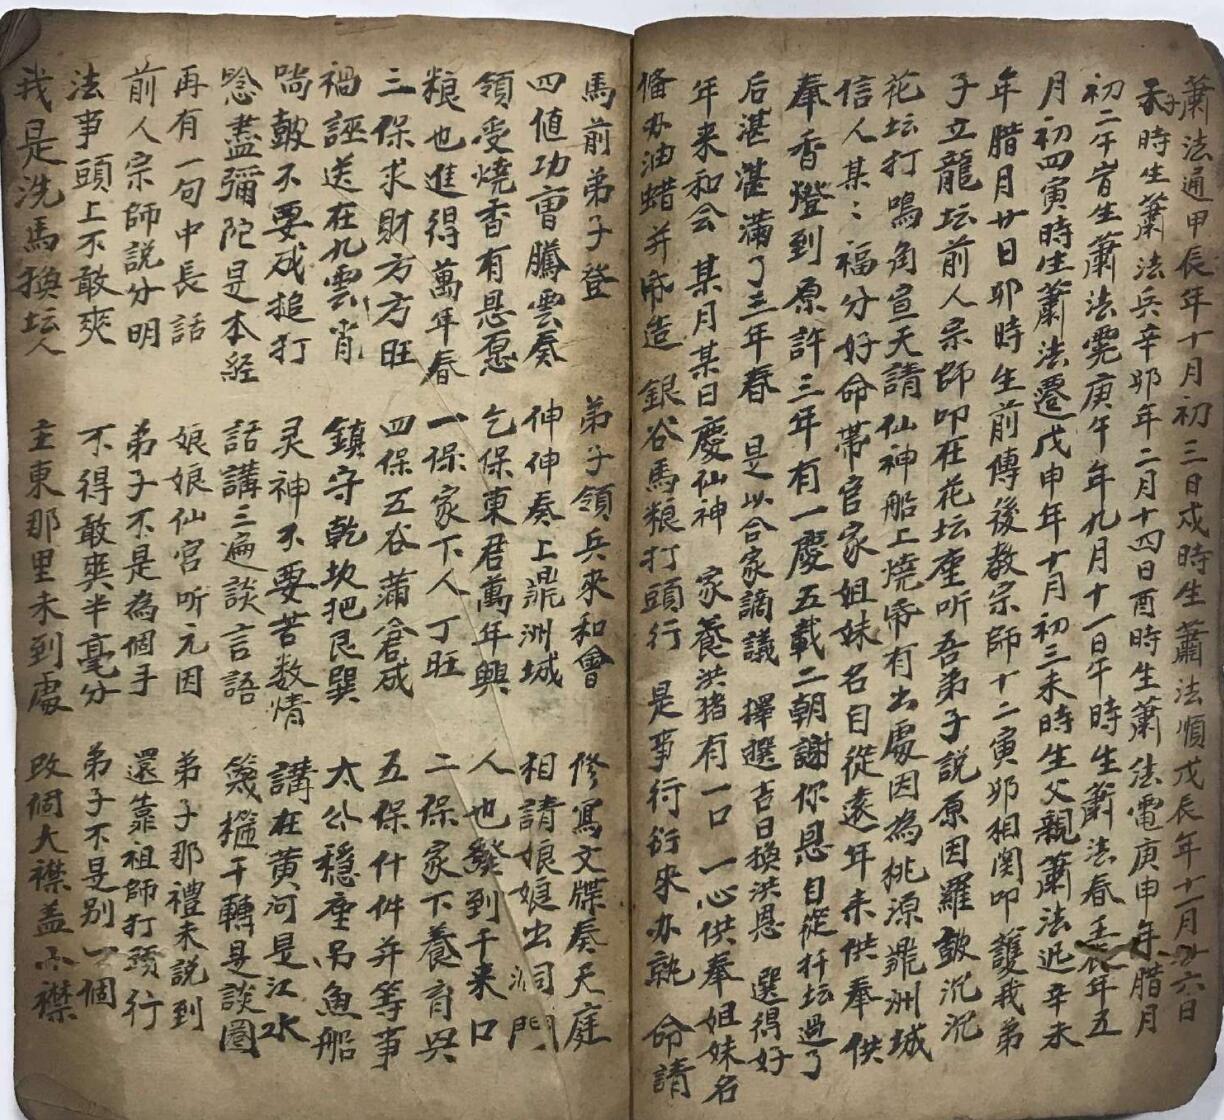 蕭法通甲辰年十月初三日戍時生蕭法順戊辰年十一月廿六日
子時生蕭法兵辛邜年二月十四日酉時生蕭法電庚申年腊月
初二午省生蕭法霓庚午年九月十一日午時生蕭法春壬辰年五
月初四寅時生蕭法遷戊申年十月初三未時生父親蕭法迅辛未
年腊月廿日邜時生前傳後教宗師十二寅邜相関叩護我弟
子立龍坛前人宗師叩在花坛座听吾弟子説原因羅皷沉沉
花坛打鳴角宣天請仙神船上燒帋有出處因為桃源鼎洲城
信人某〻福分好命帶官家姐妹名目從遠年未供奉供
奉香燈到原許三年有一慶五載二朝謝你恩自從扦坛過了
后湛湛滿了三年春 是以合家謫議 擇選吉日換洪恩 選得好
年来和会 某月某日慶仙神 家養洪猪有一口 一心供奉姐妹名
俻办油蜡并帋造 銀谷馬粮打頭行 是事行衍來办執 命請
馬前弟子登 弟子領兵來和會 修寫文牒奏天庭
四值功曹騰雲奏 伸伸奏上鼎洲城 相請娘娘出洞門
領受燒香有恳愿 乞保東君萬年興 人也發到千来口
粮也進得萬年春 一保家下人丁旺 二保家下養育興
三保求財方方旺 四保五谷蒲倉成 五保什件并等事
禍誣送在九雲肖 鎮守乾坎把艮巽 太公穩座另魚船
啺皷不要成搥打 灵神不要苦数情 講在黄河是江水
唸盡彌陀是本経 話講三遍談言語 篾櫳千轉是談圈
再有一句中長話 娘娘仙宮听元因 弟子那禮未説到
前人宗師説分明 弟子不是為個手 還靠祖師打頭行
法事頭上不敢爽 不得敢爽半毫分 弟子不是别一個
我是洗馬換坛人 主東那里未到處 改個大襟盖小襟